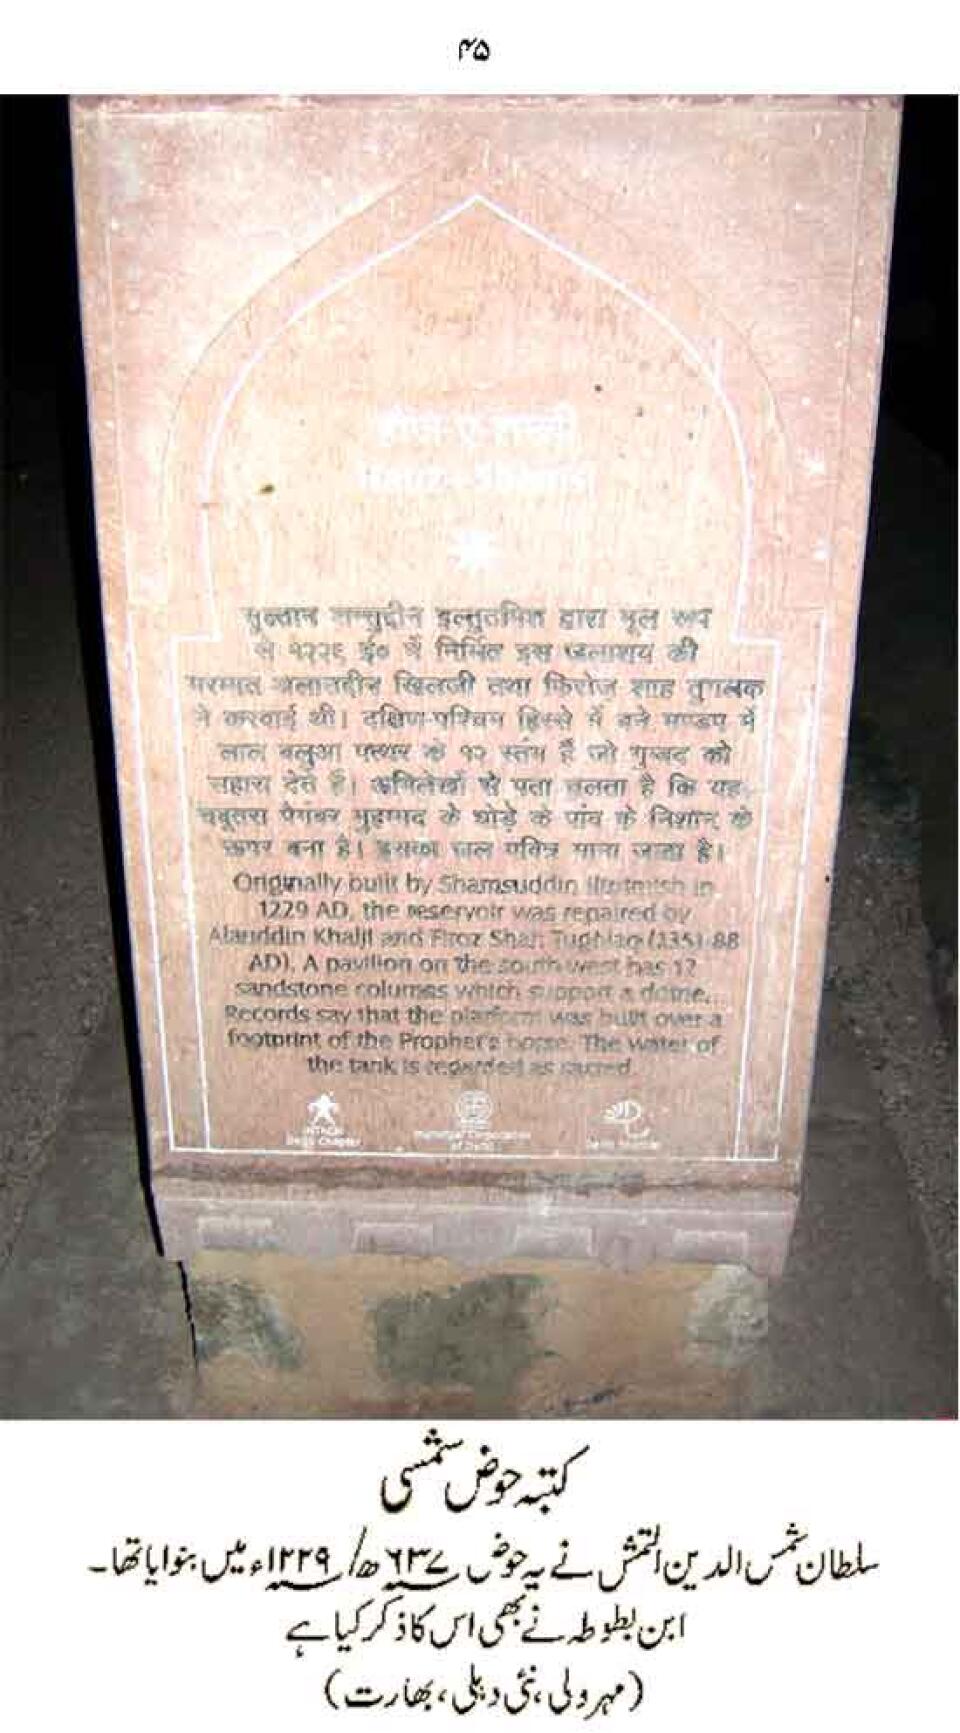 ۴۵
हौज़ ए शम्सी
Hauz-i-Shamsi
सुल्तान शम्सुद्दीन इल्तुतमिश द्वारा मूल रूप
से १२२९ ई० में निर्मित इस जलाशय की
मरम्मत अलाउद्दीन खिलजी तथा फ़िरोज़ शाह तुग़लक
ने करवाई थी। दक्षिण-पश्चिम हिस्से में बने मण्डप में
लाल बलुआ पत्थर के १२ स्तंभ हैं जो गुम्बद को
सहारा देते हैं। अभिलेखों से पता चलता है कि यह
चबूतरा पैगंबर मुहम्मद के घोड़े के पांव के निशान के
ऊपर बना है। इसका जल पवित्र माना जाता है।
Originally built by Shamsuddin Iltutmish in
1229 AD, the reservoir was repaired by
Alauddin Khalji and Firoz Shah Tughlaq (1351-88
AD). A pavilion on the south west has 12
sandstone columns which support a dome.
Records say that the platform was built over a
footprint of the Prophet's horse. The water of
the tank is regarded as sacred.
INTACH
Delhi Chapter
Municipal Corporation
of Delhi
کتبہ حوض شمسی
سلطان شمس الدین التمش نے یہ حوض ۶۳۷ھ/۱۲۲۹ء میں بنوایا تھا۔
ابن بطوطہ نے بھی اس کا ذکر کیا ہے
(مہرولی، نئی دہلی، بھارت)